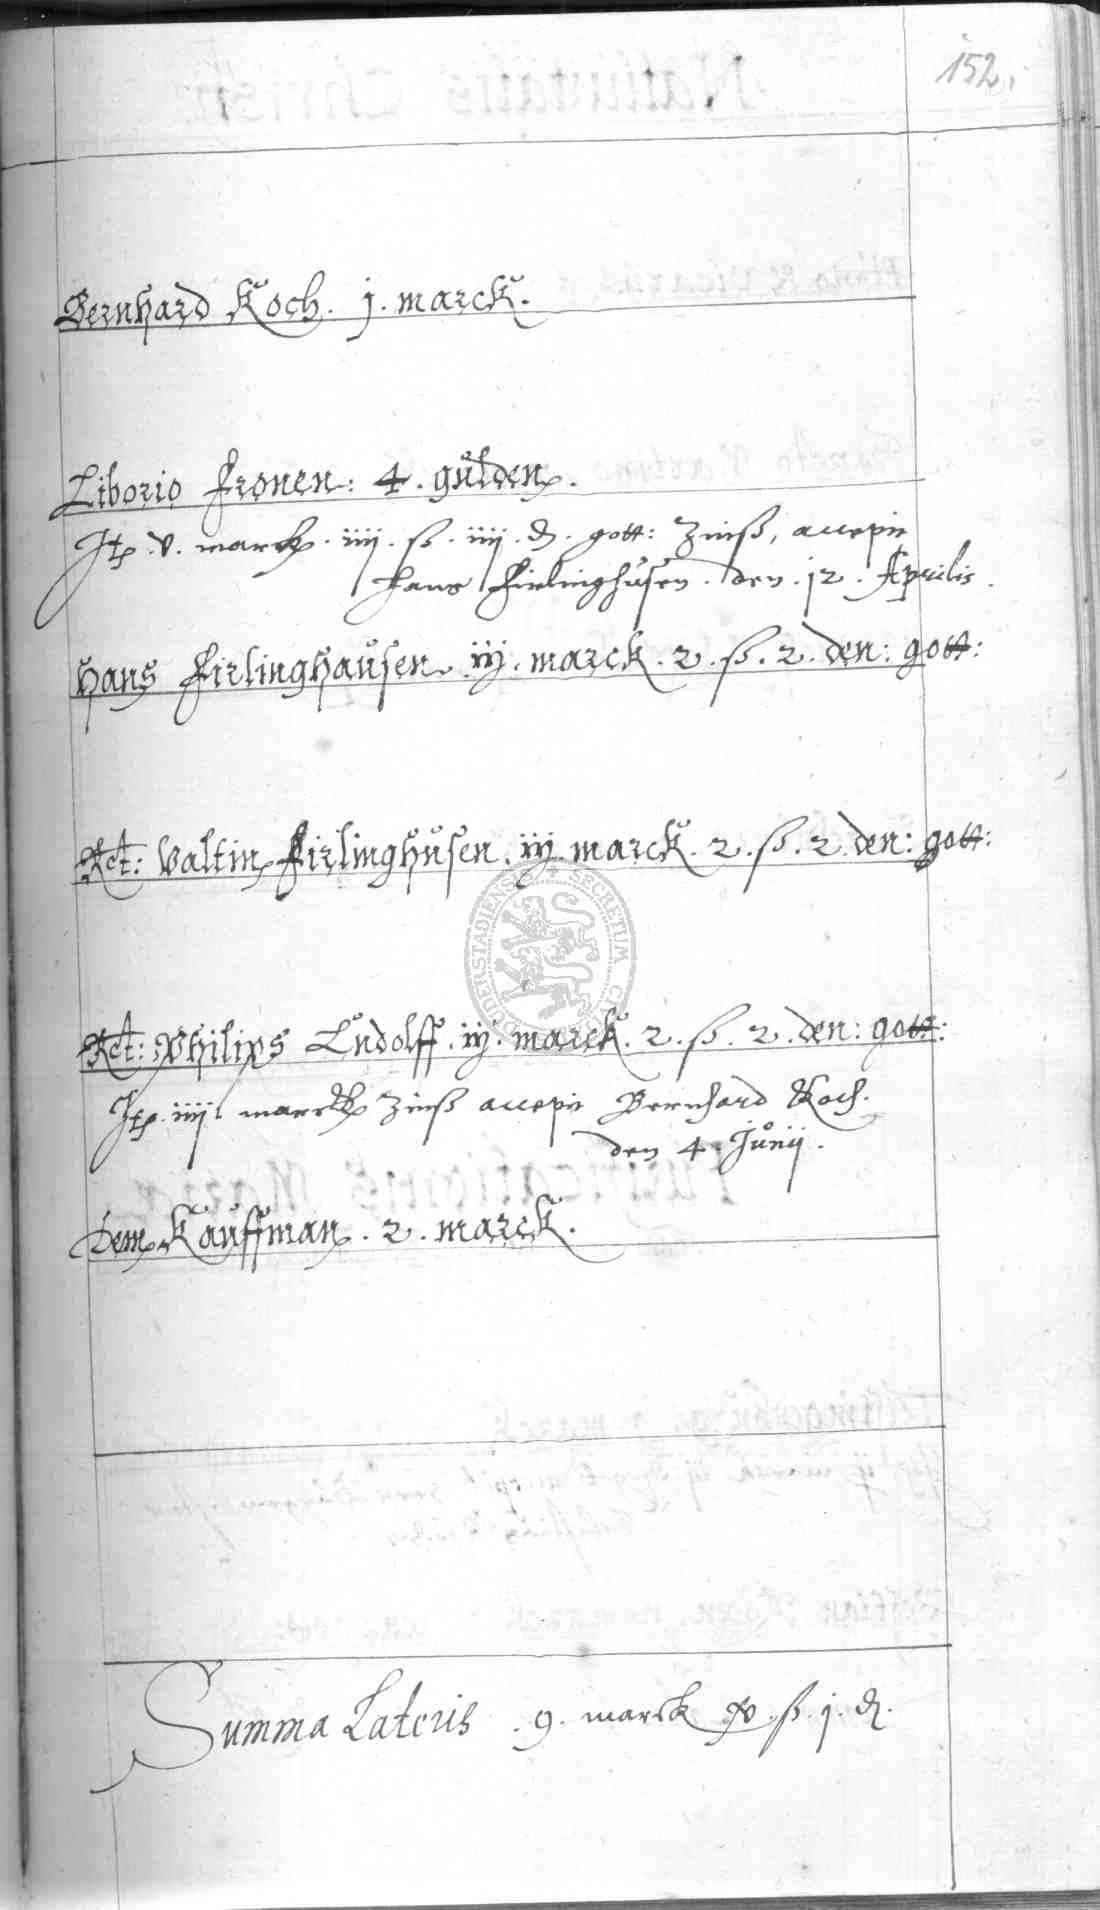 152.
Bernhard Koch. j. marck.
Liborio Fronen: 4. gůlden.
Itp. v. marck. iiii. ß. iiii. d. gott: Zinß, accepit
Hans Firlinghůsen. den. 12. Aprilis.
Hans Firlinghaůsen. iij. marck. 2. ß. 2. den: gott:
Rct: Valtin Firlinghůsen. iij. marck. 2. ß. 2. den: gott:
DUDERSTADIENSIS SECRETUM
Rct: Philips Lůdolff. iij. marck. 2. ß. 2. den: gott:
Itp. iiij. marck Zinß accepit Bernhard Koch.
den 4 Jůnij.
Dem Kaůffman. 2. marck.
Summa Lateris . 9. marck ß. j. d.